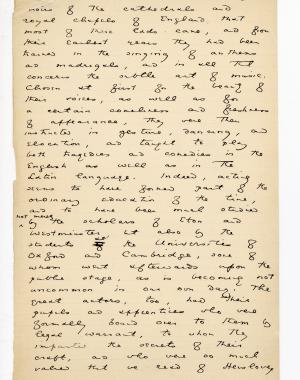 voices of the cathedrals and
royal chapels of England that
most of these lads came, and from
their earliest years they had been
trained in the singing of anthems
and madrigals, and in all that
concerns the subtle art of music.
Chosen at first for the beauty of
their voices, as well as for
a certain comeliness and freshness
of appearance, they were then
instructed in gesture, dancing, and
elocution, and taught to play
both tragedies and comedies in the
English as well as in the
Latin language. Indeed, acting
seems to have formed part of the
ordinary education of the time,
and to have been much studied
not merely
by the scholars of Eton and
Westminster, but also by the
students of the Universities of
Oxford and Cambridge, some of
whom went afterwards upon the
public stage, as is becoming not
uncommon in our own day. The
great actors, too, had their
pupils and apprentices who were
formally bound over to them by
legal warrant, to whom they
imparted the secrets of their
craft, and who were so much
valued that we read of Henslowe,